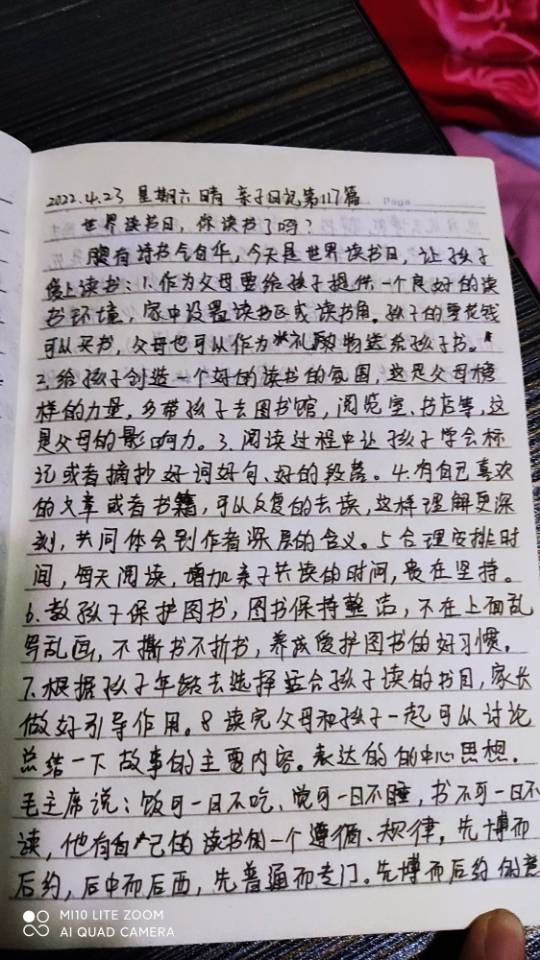 Page
2022.4.23 星期六 晴 亲子日记第117篇
世界读书日，你读书了吗？
腹有诗书气自华，今天是世界读书日，让孩子
爱上读书：1.作为父母要给孩子提供一个良好的读
书环境，家中设置读书区或读书角。孩子的零花钱
可以买书，父母也可以作为礼物送给孩子书。
2.给孩子创造一个好的读书的氛围，这是父母榜
样的力量，多带孩子去图书馆，阅览室、书店等，这
是父母的影响力。3.阅读过程中让孩子学会标
记或者摘抄好词好句、好的段落。4.有自己喜欢
的文章或者书籍，可以反复的去读，这样理解更深
刻，共同体会到作者深层的含义。5合理安排时
间，每天阅读，增加亲子共读的时间，贵在坚持。
6.教孩子保护图书，图书保持整洁，不在上面乱
写乱画，不撕书不折书，养成爱护图书的好习惯。
7.根据孩子年龄去选择适合孩子读的书目，家长
做好引导作用。8读完父母和孩子一起可以讨论
总结一下故事的主要内容。表达的的中心思想。
毛主席说：饭可一日不吃、觉可一日不睡，书不可一日不
读，他有自己的读书的一个遵循、规律，先博而
后约，后中而后西，先普通而专门。先博而后约的意
MI10 LITE ZOOM
AI QUAD CAMERA